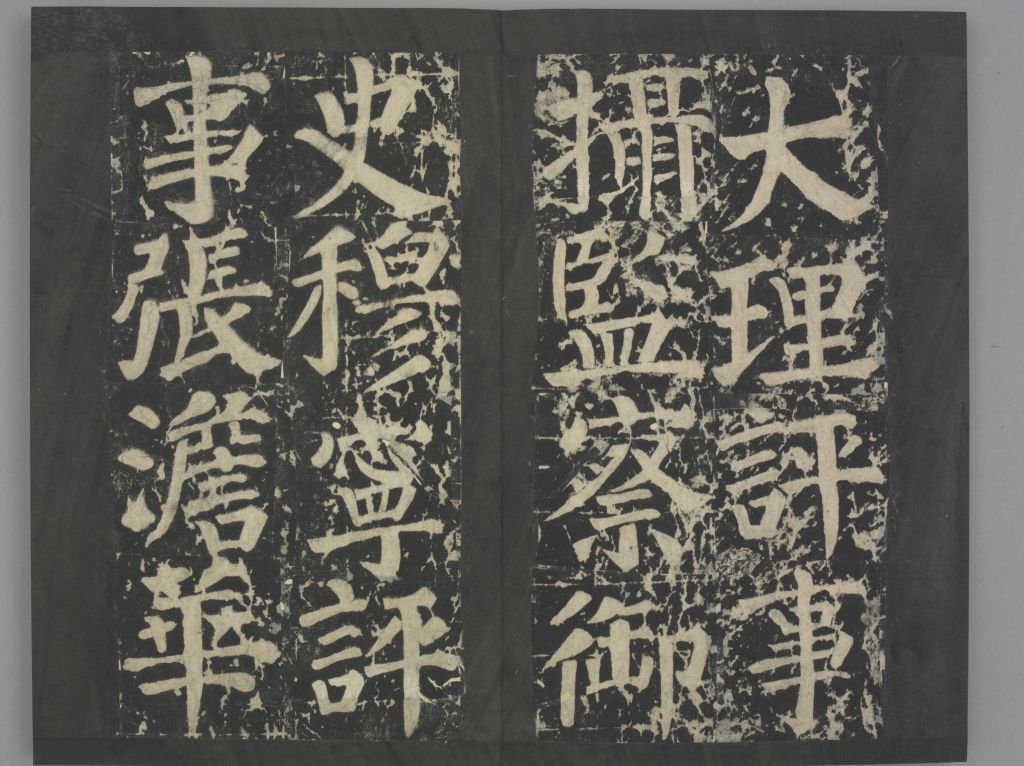 大理評事
攝監蔡御
史穆寧評
事張澹華